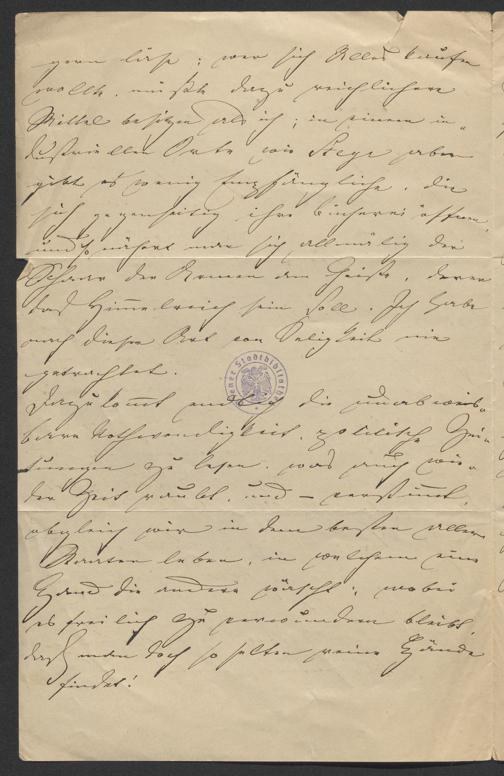 gern läse; wer sich Alles kaufen
wollte, müßte dazu reichlichere
Mittel besitzen als ich; in einem in-
dustriellen Orte wie Steyr aber
gibt es wenig Empfängliche, die
sich gegenseitig ihre Bücherei öffnen,
und so nähert man sich allmälig der
Schaar der Armen am Geiste, deren
das Himmelreich sein soll. Ich habe
nach dieser Art von Seligkeit nie
getrachtet.
Dazu kommt die unabweis-
bare Nothwendigkeit, politische Zei-
tungen zu lesen, was auch wie-
der Zeit raubt, und – verstimmt,
obgleich wir in dem besten aller
Staaten leben, in welchem eine
Hand die andere wäscht; wobei
es freilich zu verwundern bleibt,
daß man doch so selten reine Hände
findet!
Wiener Stadtbibliothek